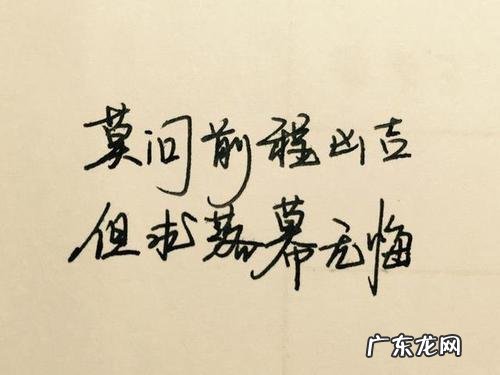 莫问前程凶吉
但求落幕无悔
广东龙网